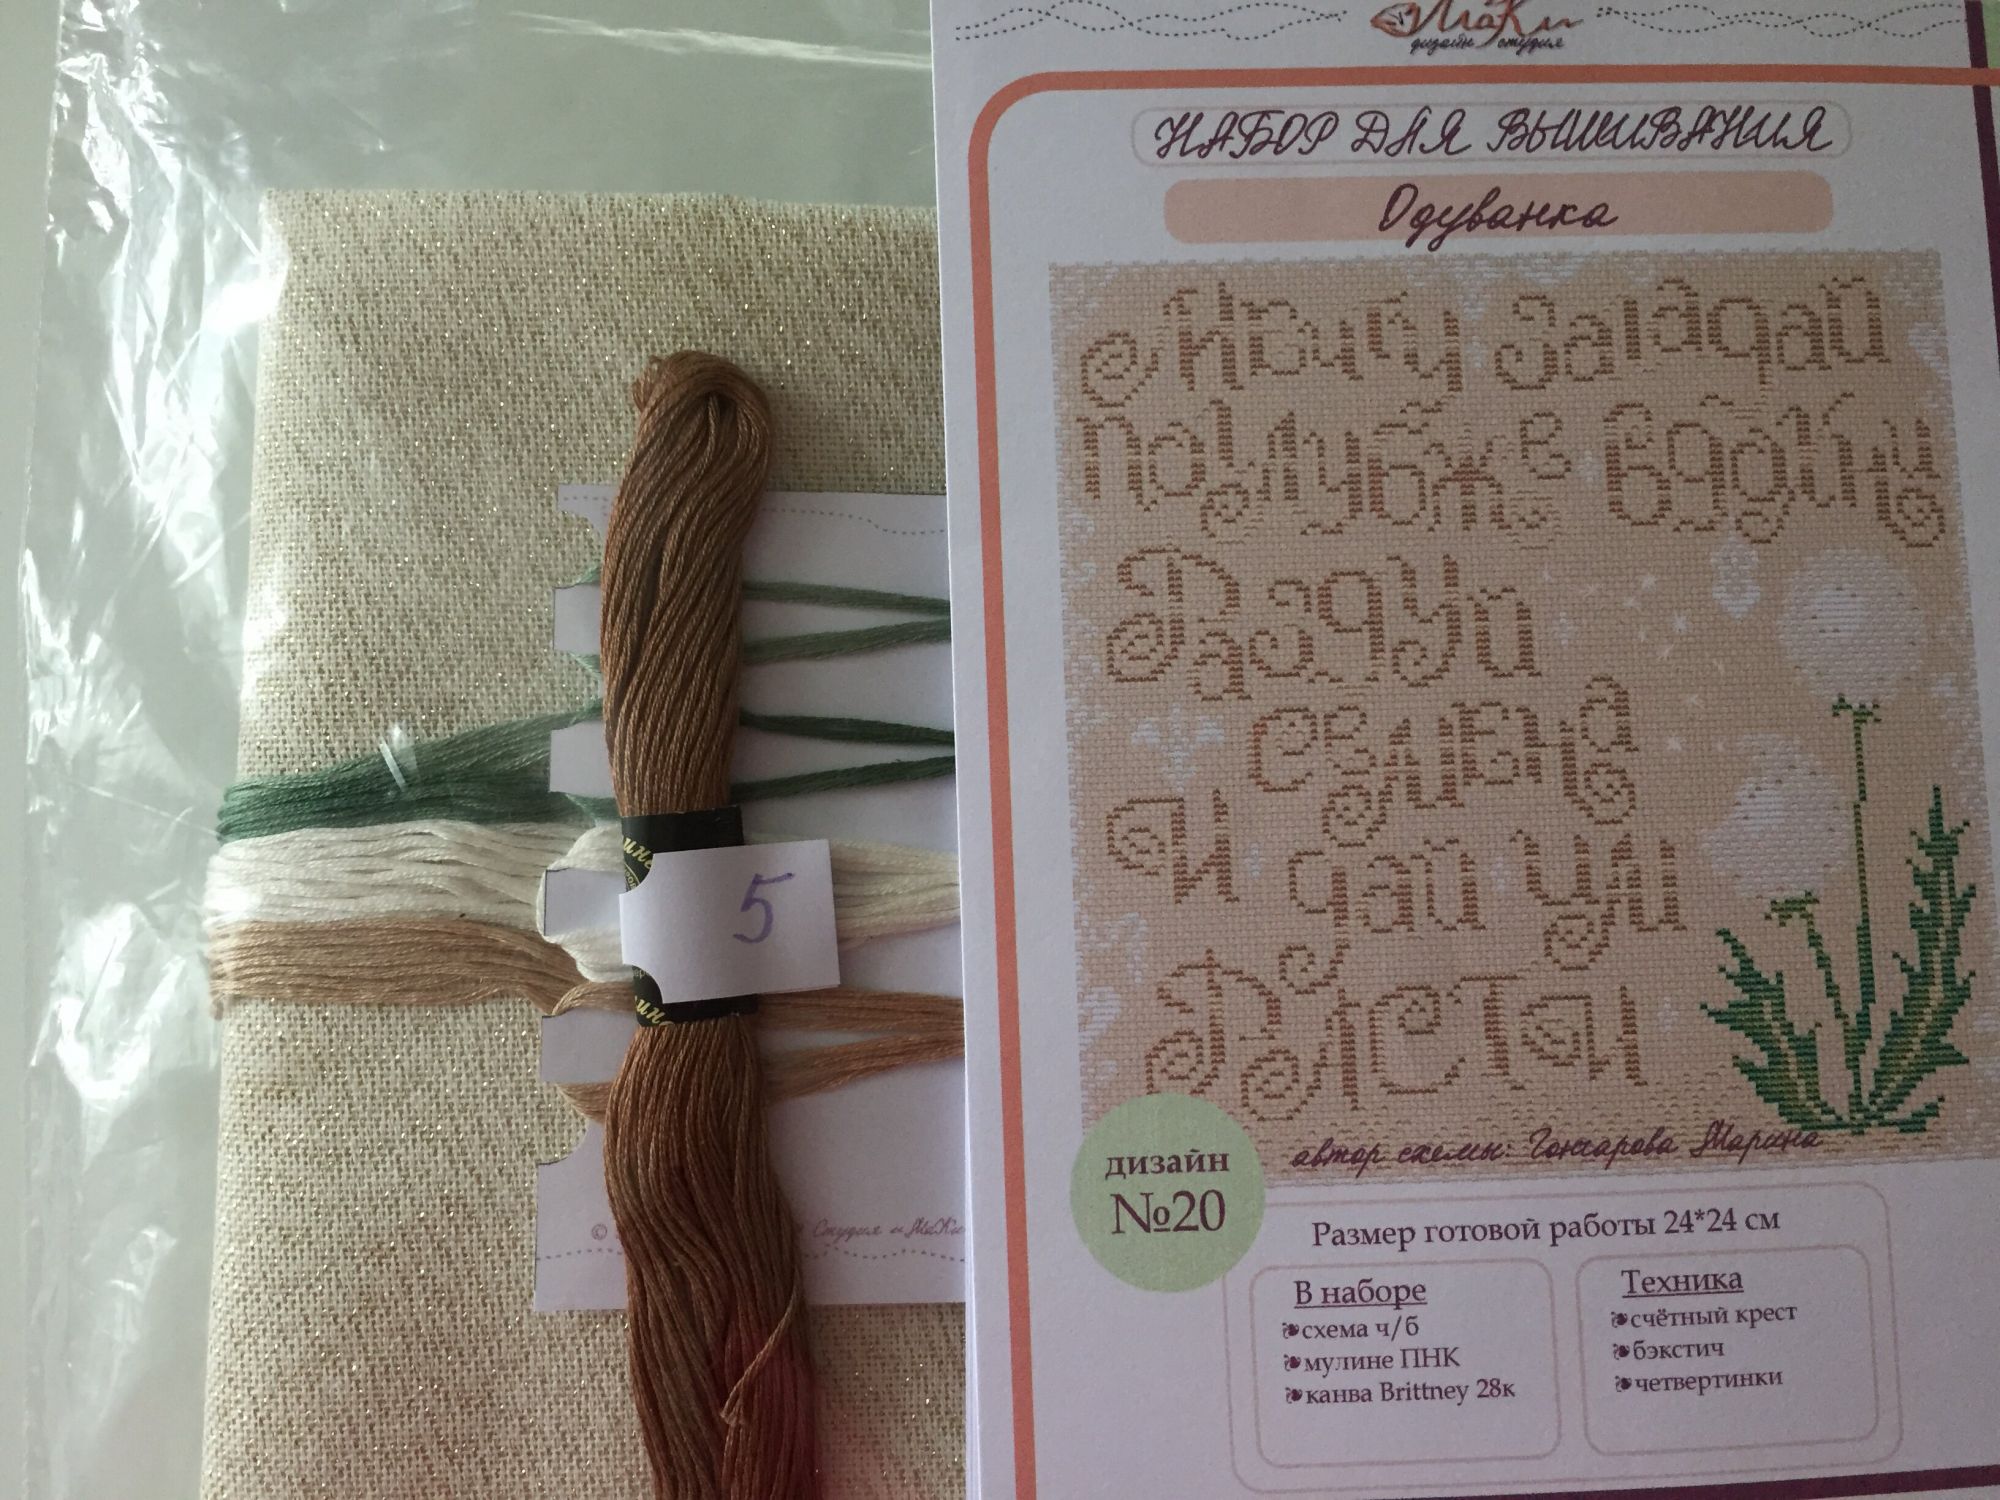 МаКи
дизайн студия
НАБОР ДЛЯ ВЫШИВАНИЯ
Одуванка
Мечту загадай
поглубже вдохну
Раздуй
семена
и дай им
взлететь
автор схемы: Гончарова Марина
дизайн
№20
Размер готовой работы 24*24 см
В наборе
схема ч/б
мулине ПНК
канва Brittney 28к
Техника
счётный крест
бэкстич
четвертинки
5
© Студия МаКи